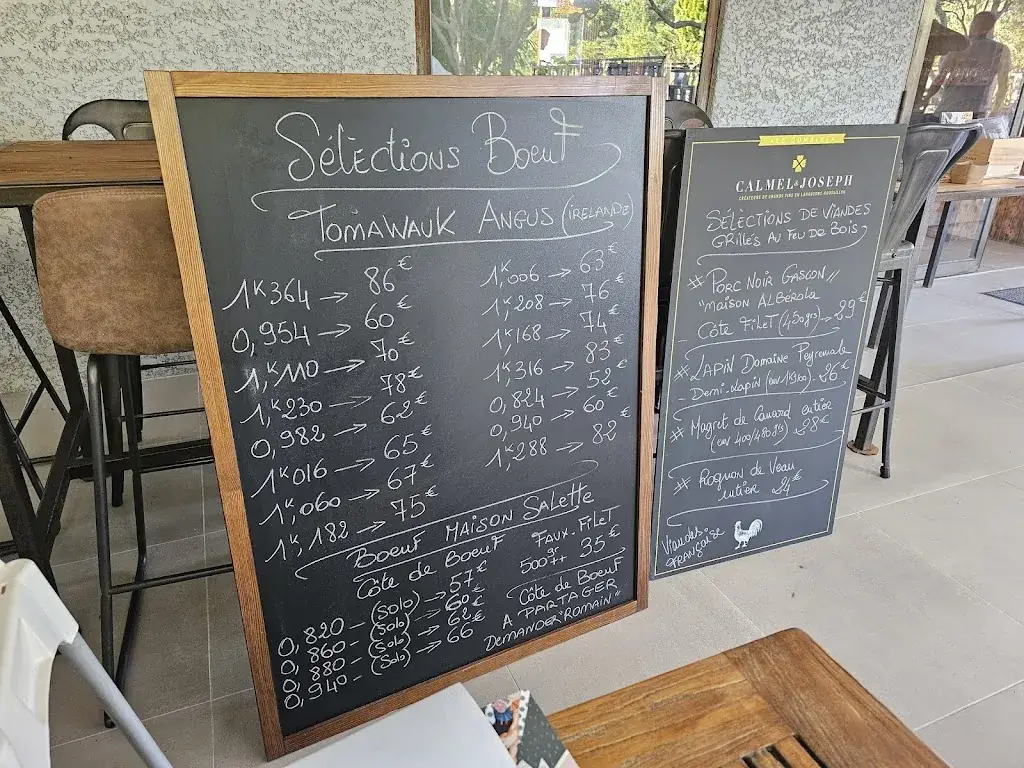 Sélèctions Boeuf
TOMAWAUK ANGUS (IRELANDE)
1K364 → 86€
0,954 → 60€
1,K110 → 70€
1,K230 → 78€
0,982 → 62€
1K016 → 65€
1K,060 → 67€
1K,182 → 75€
1,K006 → 63€
1,K208 → 76€
1,K168 → 74€
1,K316 → 83€
0,824 → 52€
0,940 → 60€
1,K288 → 82€
BOEUF MAISON SALETTE
Côte de Boeuf
0,820 - (Solo) → 57€
0,860 - (Solo) → 60€
0,880 - (Solo) → 62€
0,940 - (Solo) → 66€
FAUX-FILET
500gr++ 35€
Côte de Boeuf
A PARTAGER
DEMANDER "ROMAIN"
CALMEL & JOSEPH
CRÉATEURS DE GRANDS VINS EN LANGUEDOC-ROUSSILLON
SÉLÈCTIONS DE VIANDES
GRILLÉS AU FEU DE BOIS
# PORC NOIR GASCON //
"MAISON ALBÉROLA
CÔTE FILET (450grs) → 29€
# LAPIN Domaine Peyremale
- Demi-lapin (env 1K900) - 26€
# Magret de Canard entier
(env 400/480grs) → 28€
# Rognon de Veau
entier → 24€
Viandes
française